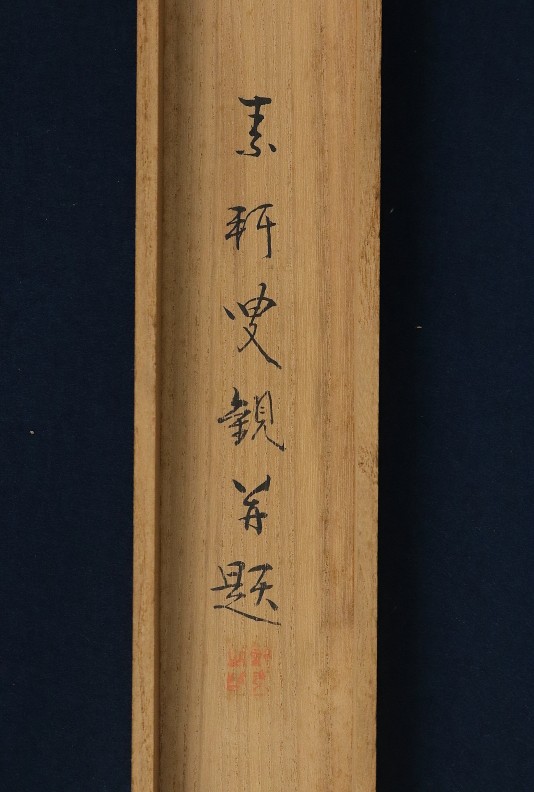 素軒叟観并題